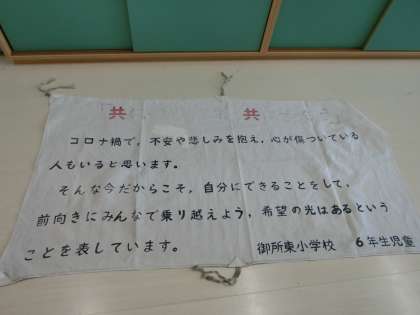 共 共
コロナ禍で、不安や悲しみを抱え、心が傷ついている
人もいると思います。
そんな今だからこそ、自分にできることをして、
前向きにみんなで乗り越えよう、希望の光はあるという
ことを表しています。
御所東小学校 6年生児童